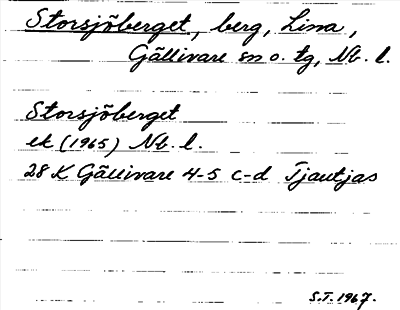 Storsjöberget, berg, Lina,
Gällivare sn o. tg, Nb. l.
Storsjöberget
ek (1965) Nb. l.
28 K Gällivare 4-5 c-d Tjautjas
S.T. 1967.